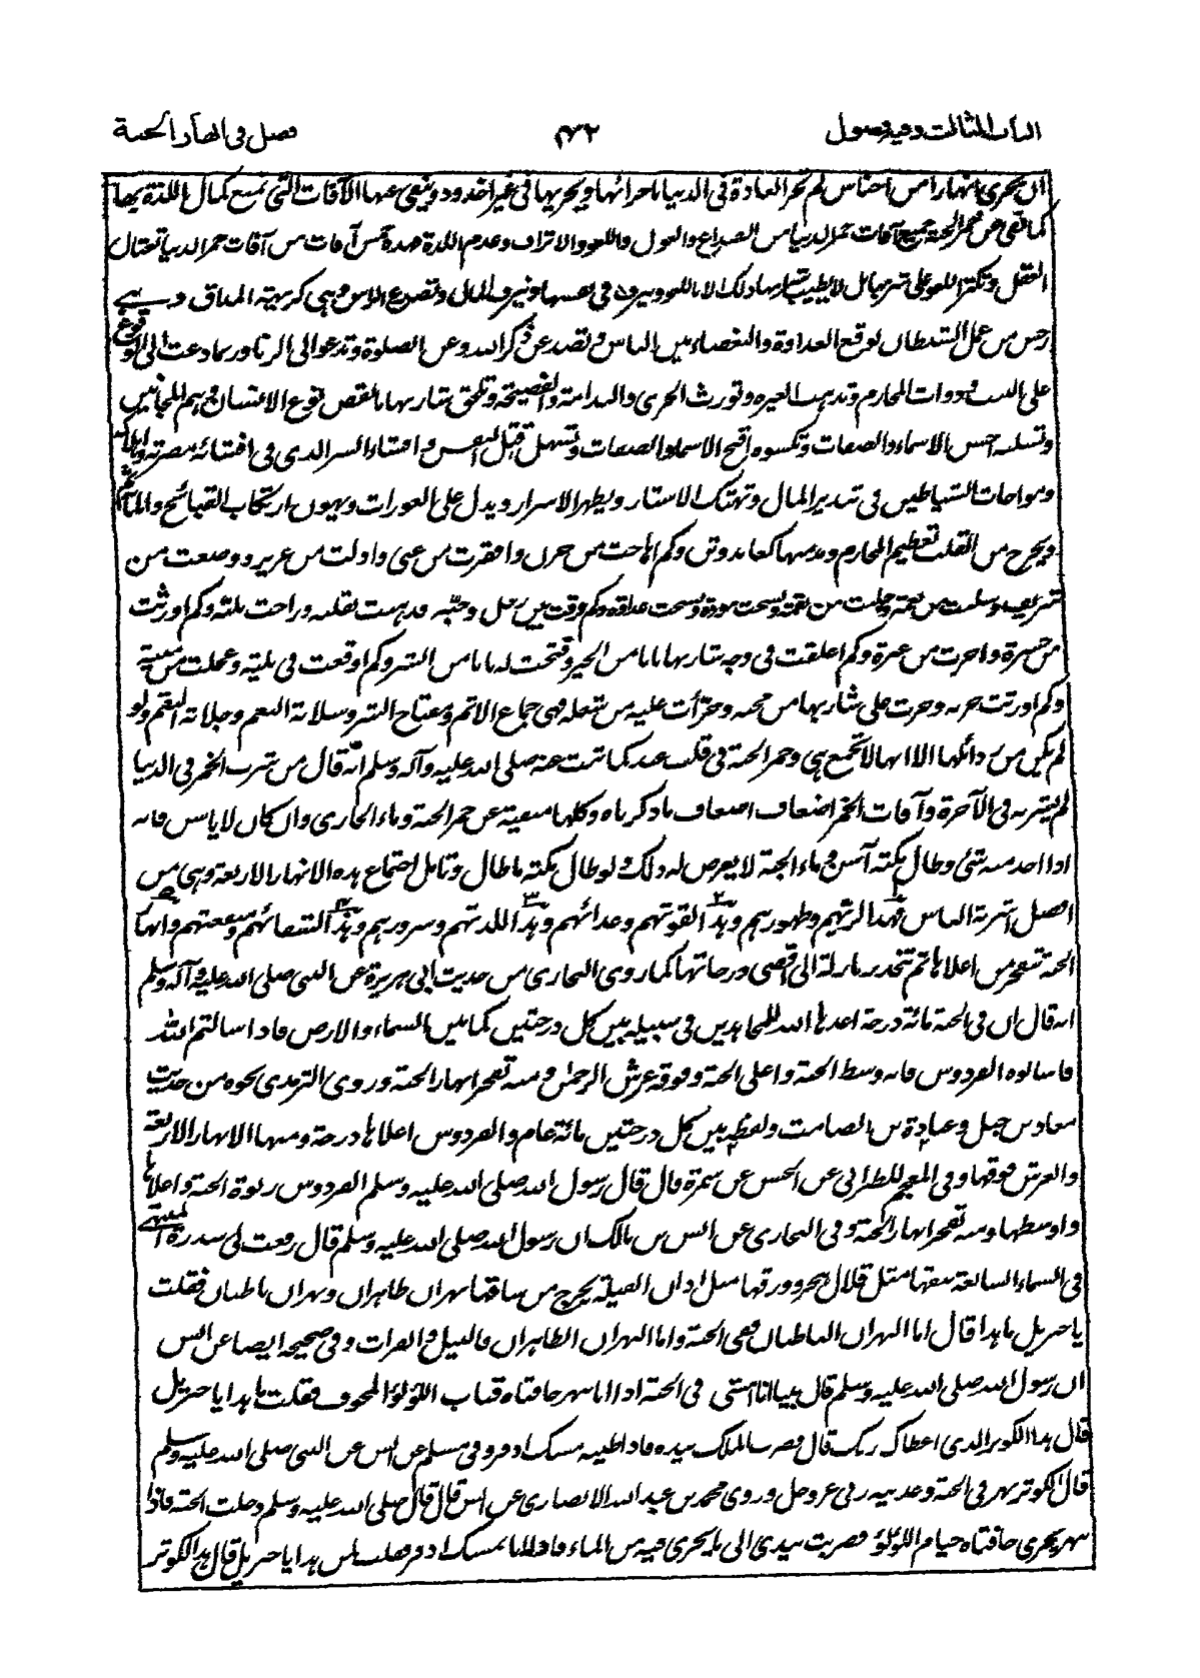 الباب الثالث وفيه فصول ٤٣٢ فصل في انهار الجنة
ان يجري انهارا من اجناس لم تجر العادة في الدنيا باجرائها ويجريها في غير اخدود وينفي عنها الآفات التي تمنع كمال اللذة بها
كما نفى عن خمر الجنة جميع آفات خمر الدنيا من الصداع والغول واللغو والانزاف وعدم اللذة فهذه خمس آفات من آفات خمر الدنيا تغتال
العقل وتكثر اللغو على شربها بل لا يطيب لشاربها ذلك الا باللغو وينزف في نفسها وتنزف المال وتصدع الراس وهي كريهة المذاق وهي
رجس من عمل الشيطان توقع العداوة والبغضاء بين الناس وتصد عن ذكر الله وعن الصلوة وتدعو الى الزنا وربما دعت الى الوقوع
على البنت وذوات المحارم وتذهب الغيرة وتورث الخزي والندامة والفضيحة وتلحق شاربها بانقص نوع الانسان وهم المجانين
وتسلبه احسن الاسماء والصفات وتكسوه اقبح الاسماء والصفات وتسهل قتل النفس وافشاء السر الذي في افشائه مضرته
ومواخات الشياطين في تبذير المال وتهتك الاستار ويظهر الاسرار ويدل على العورات ويهون ارتكاب القبائح والمآثم
ويخرج من القلب تعظيم المحارم ومدمنها كعابد وثن وكم اهاجت من حرب وافقرت من غني واذلت من عزيز ووضعت من
شريف وسلبت من نعمة وجلبت من نقمة وفسخت مودة ونسجت عداوة وكم فرقت بين رجل وحبه فذهبت بقلبه وراحت بلبه وكم اورثت
من حسرة واجرت من عبرة وكم اغلقت في وجه شاربها بابا من الخير وفتحت له بابا من الشر وكم اوقعت في بلية وعجلت من منية
وكم اورثت خزية وجرت على شاربها من محنة وجرأت عليه من سفلة فهي جماع الاثم ومفتاح الشر وسلابة النعم وجلابة النقم ولو
لم يكن من رذائلها الا انها لا تجتمع هي وخمر الجنة في قلب عبد كما ثبت عنه صلى الله عليه وآله وسلم انه قال من شرب الخمر في الدنيا
لم يشربه في الآخرة وآفات الخمر اضعاف اضعاف ما ذكرناه وكلها منتفية عن خمر الجنة وماء الجاري وان كان لا ياسن فانه
اذا اخذ منه شئ وطال مكثه آسن وماء الجنة لا يعرض له ذلك ولو طال مكثه ما طال وتامل اجتماع هذه الانهار الاربعة وهي من
افضل اشربة الناس فهذا لريهم وطهورهم وهذا لقوتهم وغذائهم وهذا للذتهم وسرورهم وهذا لشفائهم ومنفعتهم وانهار
الجنة تتفجر من اعلاها ثم تنحدر نازلة الى اقصى درجاتها كما روى البخاري من حديث ابي هريرة عن النبي صلى الله عليه وآله وسلم
انه قال ان في الجنة مائة درجة اعدها الله للمجاهدين في سبيله بين كل درجتين كما بين السماء والارض فاذا سالتم الله
فاسالوه الفردوس فانه وسط الجنة واعلى الجنة وفوقه عرش الرحمن ومنه تفجر انهار الجنة وروى الترمذي نحوه من حديث
معاذ بن جبل وعبادة بن الصامت ولفظه بين كل درجتين مائة عام والفردوس اعلاها درجة ومنها الانهار الاربعة
والعرش فوقها وفي المعجم للطبراني عن الحسن عن سمرة قال قال رسول الله صلى الله عليه وسلم الفردوس ربوة الجنة واعلاها
واوسطها ومنه تفجر انهار الجنة وفي البخاري عن انس بن مالك ان رسول الله صلى الله عليه وسلم قال رفعت لي سدرة المنتهى
في السماء السابعة نبقها مثل قلال هجر وورقها مثل اذان الفيلة يخرج من ساقها نهران ظاهران ونهران باطنان فقلت
يا جبريل ما هذا قال اما النهران الباطنان ففي الجنة واما النهران الظاهران فالنيل والفرات وفي صحيحه ايضا عن انس
ان رسول الله صلى الله عليه وسلم قال بينا انا امشي في الجنة اذا انا بنهر حافتاه قباب اللؤلؤ المجوف فقلت ما هذا يا جبريل
قال هذا الكوثر الذي اعطاك ربك قال فضرب الملك بيده فاذا طينه مسك اذفر وفي مسلم عن انس عن النبي صلى الله عليه وسلم
قال الكوثر نهر في الجنة وعدنيه ربي عز وجل وروى محمد بن عبد الله الانصاري عن انس قال قال صلى الله عليه وسلم دخلت الجنة فاذا
نهر يجري حافتاه خيام اللؤلؤ فضربت بيدي الى ما يجري فيه من الماء فاذا انا بمسك اذفر فقلت لمن هذا يا جبريل قال هذا الكوثر